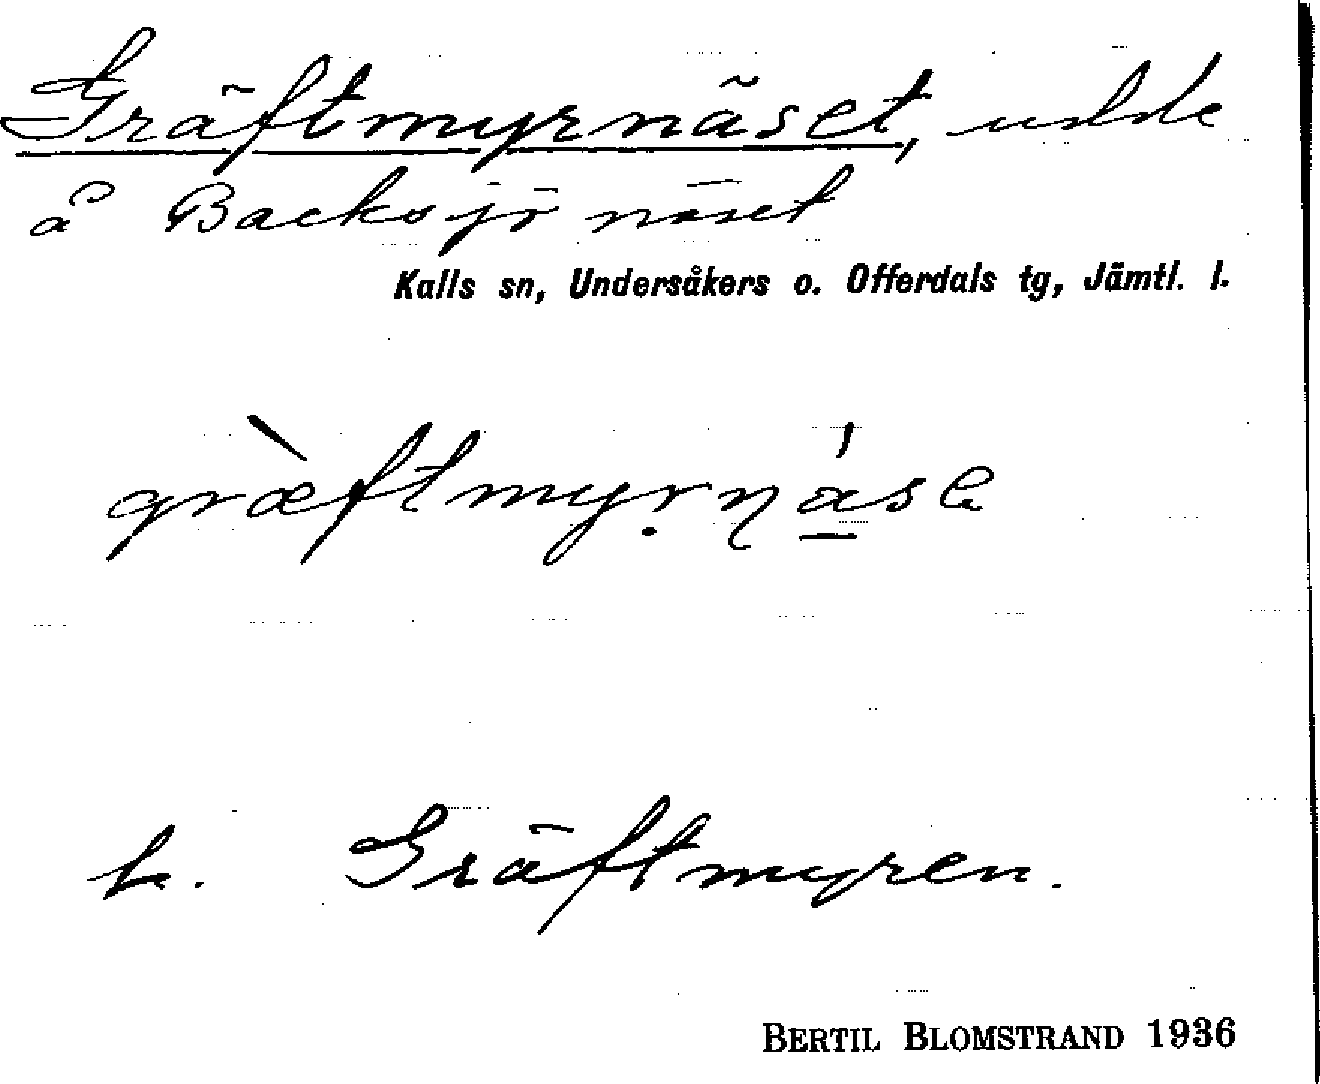 Gräftmyrnäset, udde
å Backsjönäset
Kalls sn, Undersåkers o. Offerdals tg, Jämtl. l.
græ̀ftmyṛŋa̲̍sə
Gräftmyren.
BERTIL BLOMSTRAND 1936